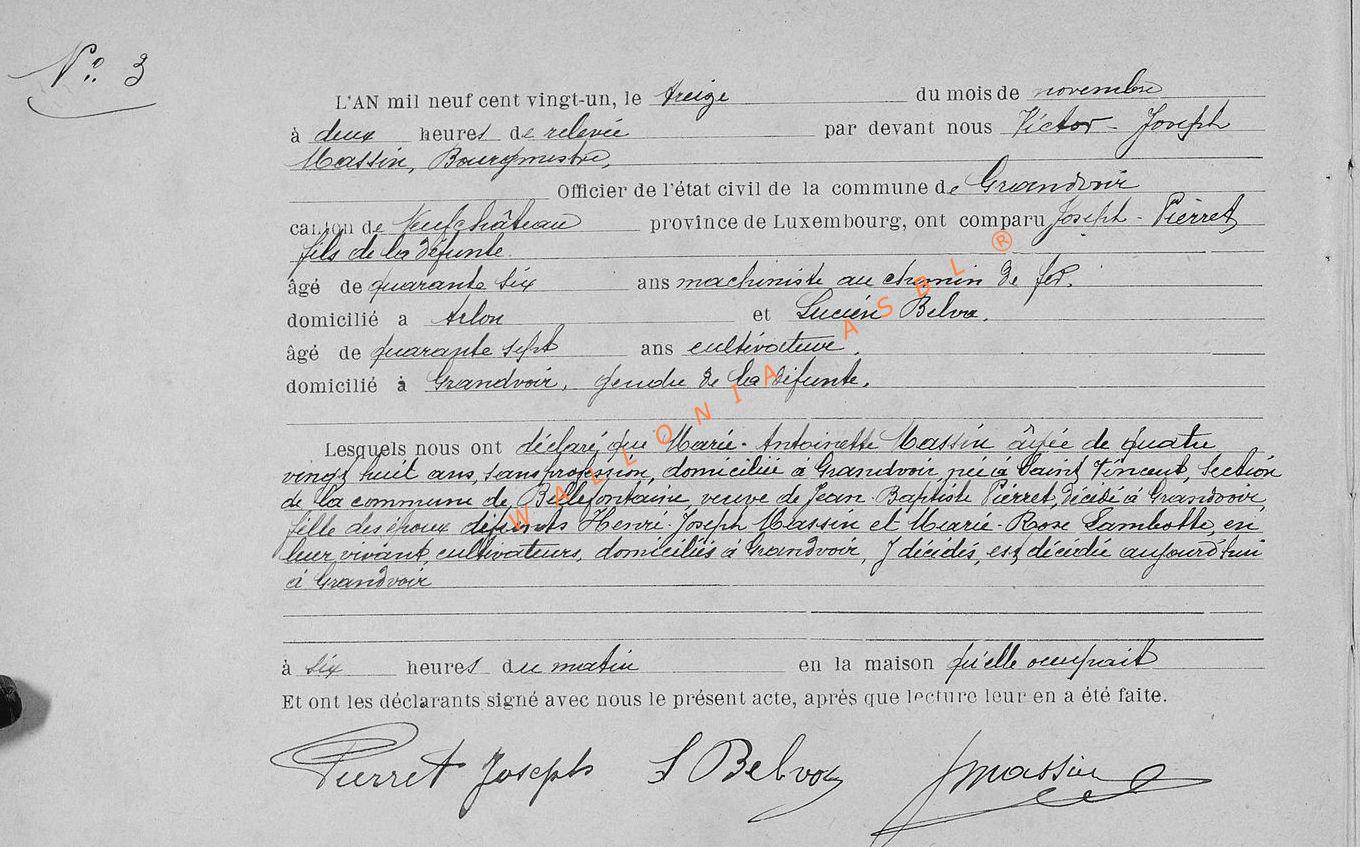 N° 3
L'AN mil neuf cent vingt-un, le treize du mois de novembre
à deux heures de relevée par devant nous Victor - Joseph
Massin, Bourgmestre,
Officier de l'état civil de la commune de Grandvoir
canton de Neufchâteau province de Luxembourg, ont comparu Joseph - Pierret
fils de la défunte.
âgé de quarante six ans machiniste au chemin de fer.
domicilié a Arlon et Lucien Belva.
âgé de quarante sept ans cultivateur.
domicilié à Grandvoir, gendre de la défunte.
Lesquels nous ont déclaré que Marie - Antoinette Massin âgée de quatre
vingt huit ans, sans profession, domiciliée à Grandvoir, née à Saint Vincent, section
de la commune de Bellefontaine, veuve de Jean - Baptiste Pierret, décédé à Grandvoir,
fille des époux défunts Henri - Joseph Massin et Marie - Rose Lambotte, en
leur vivant, cultivateurs, domiciliés à Grandvoir, y décédés, est décédée aujourd'hui
à Grandvoir
à six heures du matin en la maison qu'elle occupait
Et ont les déclarants signé avec nous le présent acte, après que lecture leur en a été faite.
Pierret Joseph L Belva Jmassin
WALLONIA ASBL ®